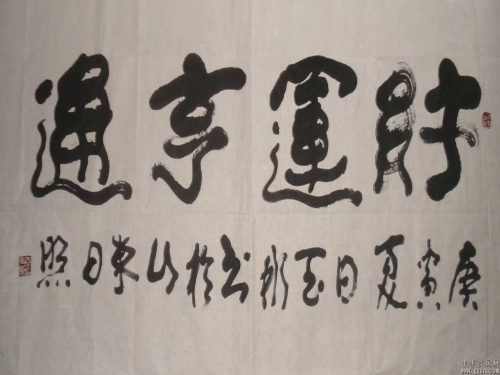 財運亨通
庚寅夏日玉彬书於山东日照